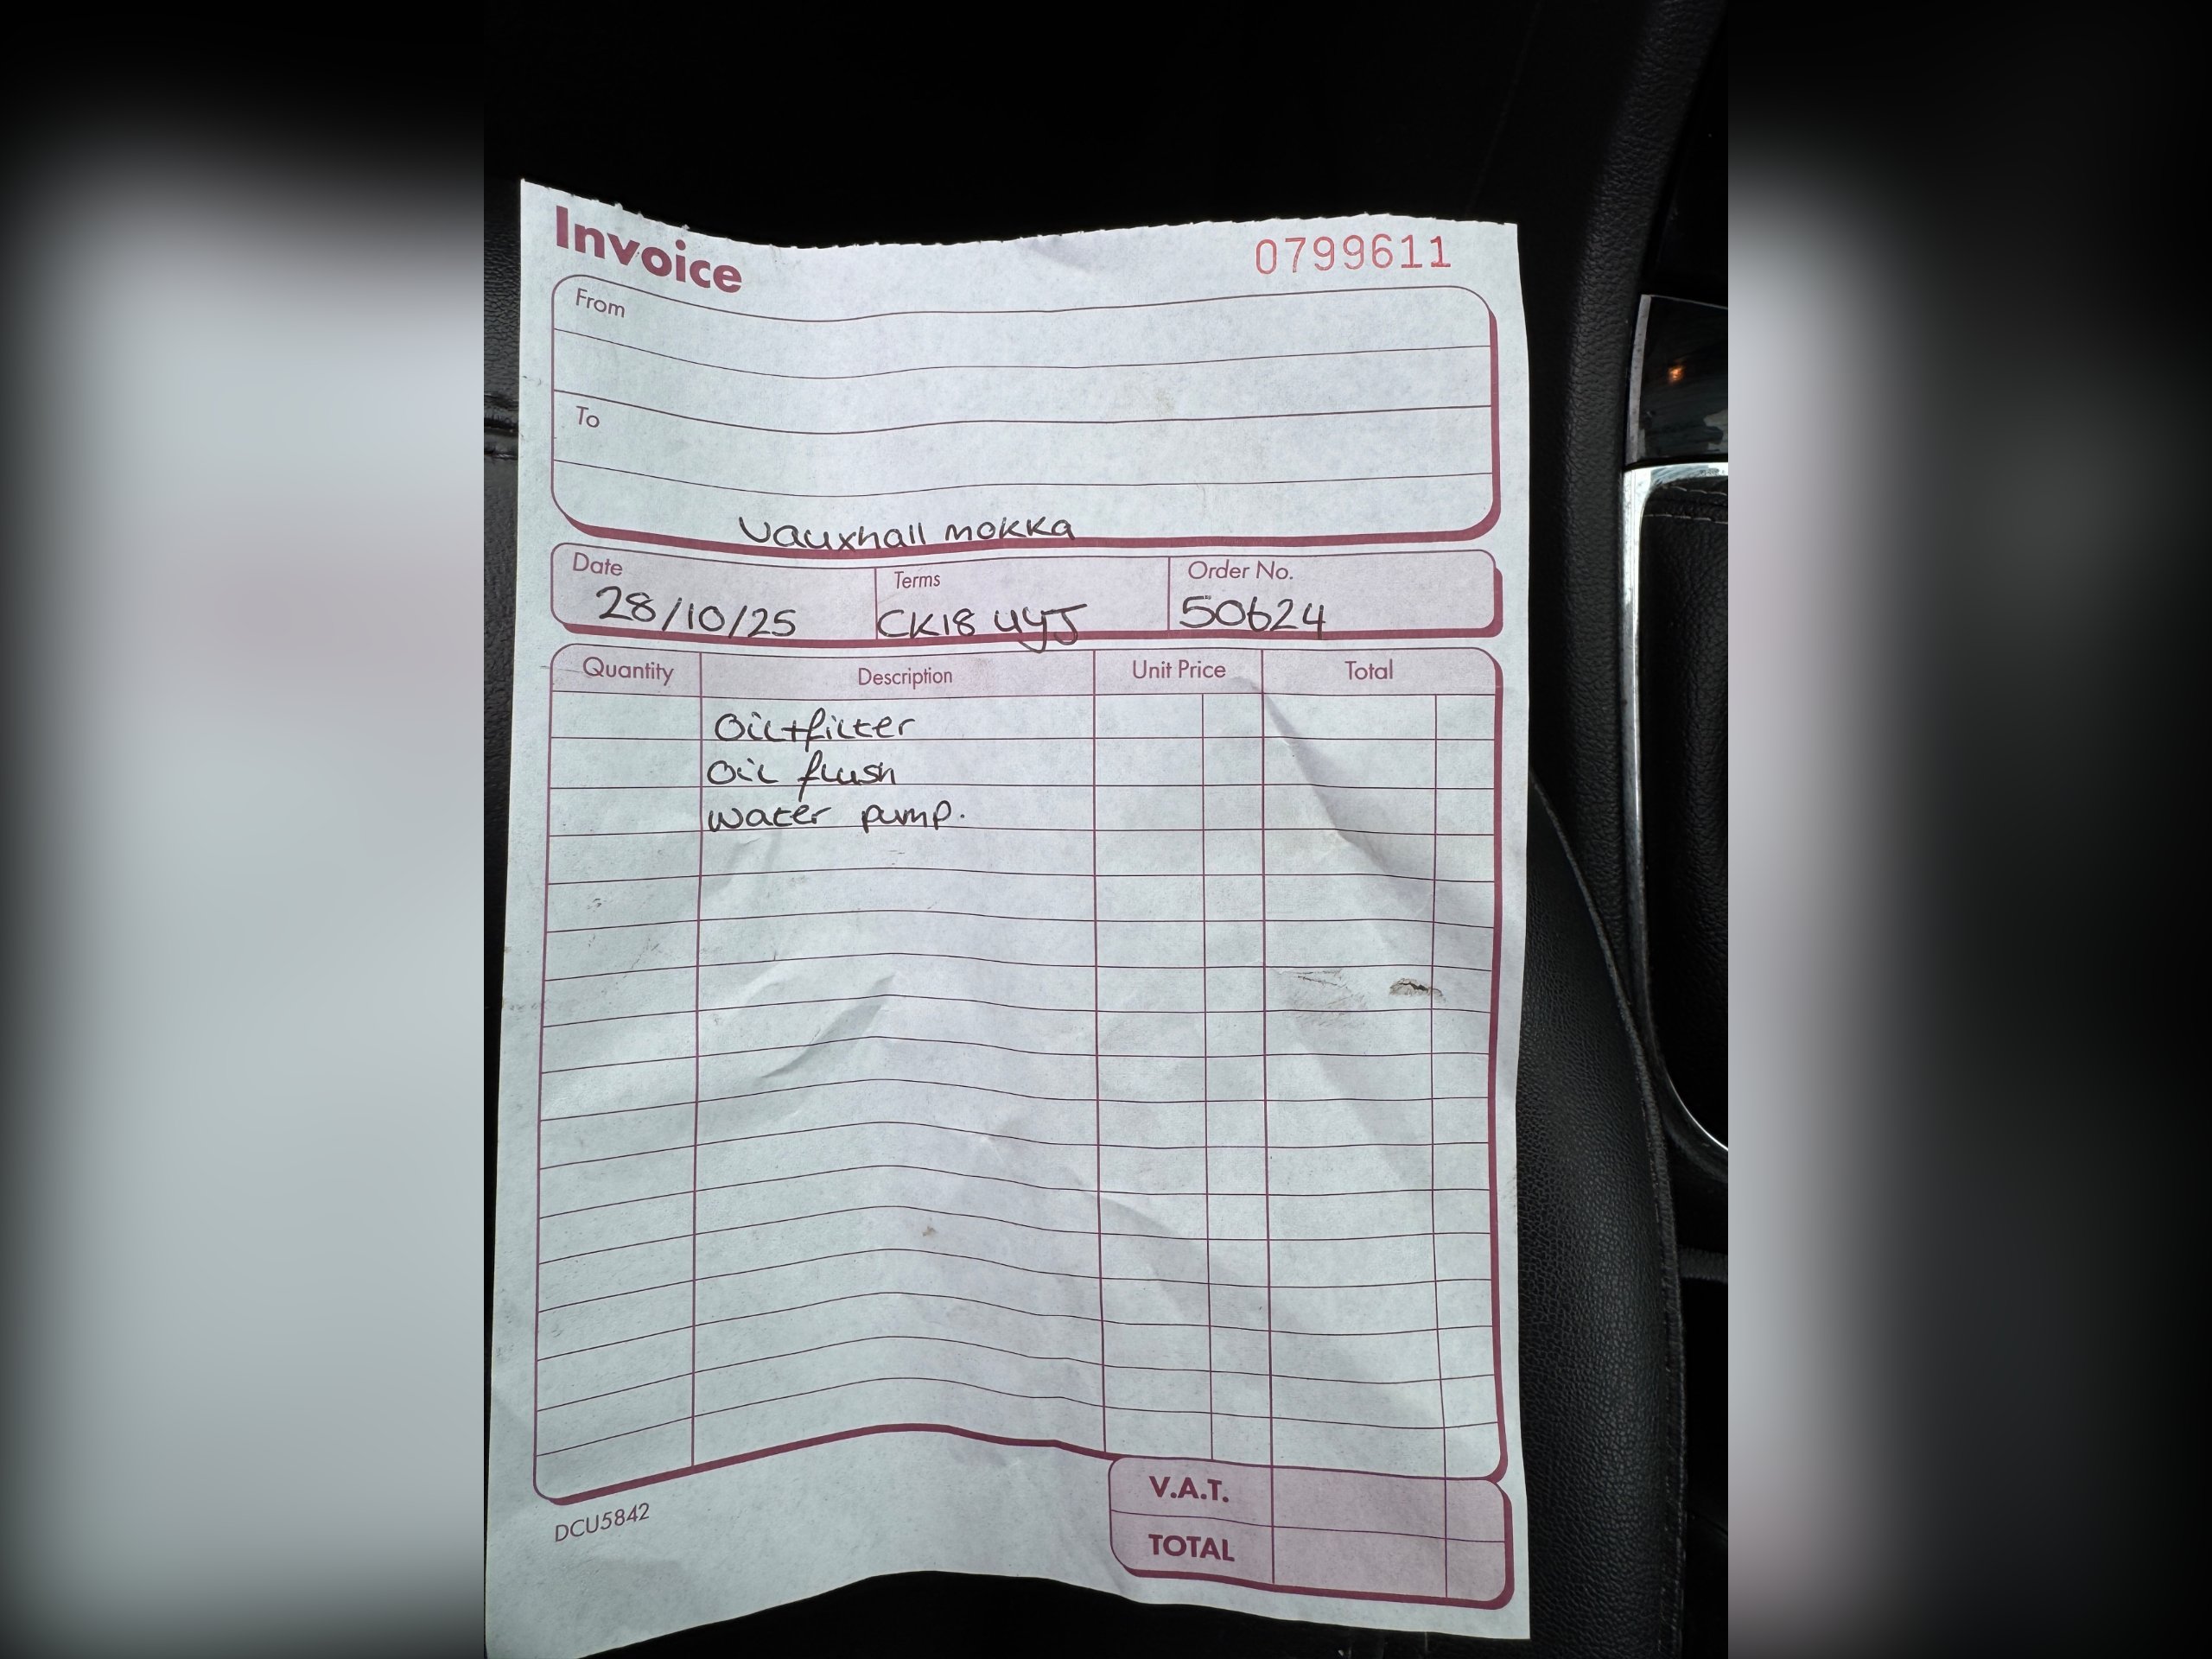 Invoice
0799611
From
To
Vauxhall mokka
Date
Terms
Order No.
28/10/25
CK18 UYJ
50624
Quantity
Description
Unit Price
Total
Oil+filter
Oil flush
water pump.
V.A.T.
TOTAL
DCU5842